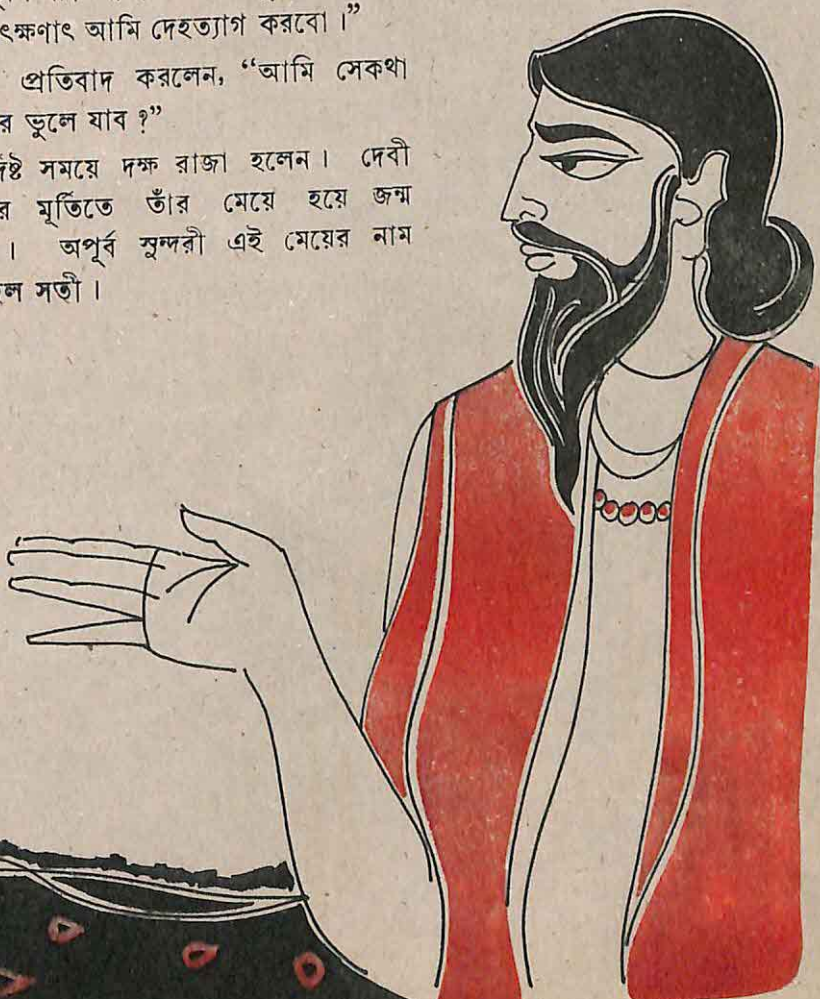 ৎক্ষণাৎ আমি দেহত্যাগ করবো।”
প্রতিবাদ করলেন, “আমি সেকথা
র ভুলে যাব ?”
দিষ্ট সময়ে দক্ষ রাজা হলেন। দেবী
র মূর্তিতে তাঁর মেয়ে হয়ে জন্ম
। অপূর্ব সুন্দরী এই মেয়ের নাম
ল সতী।